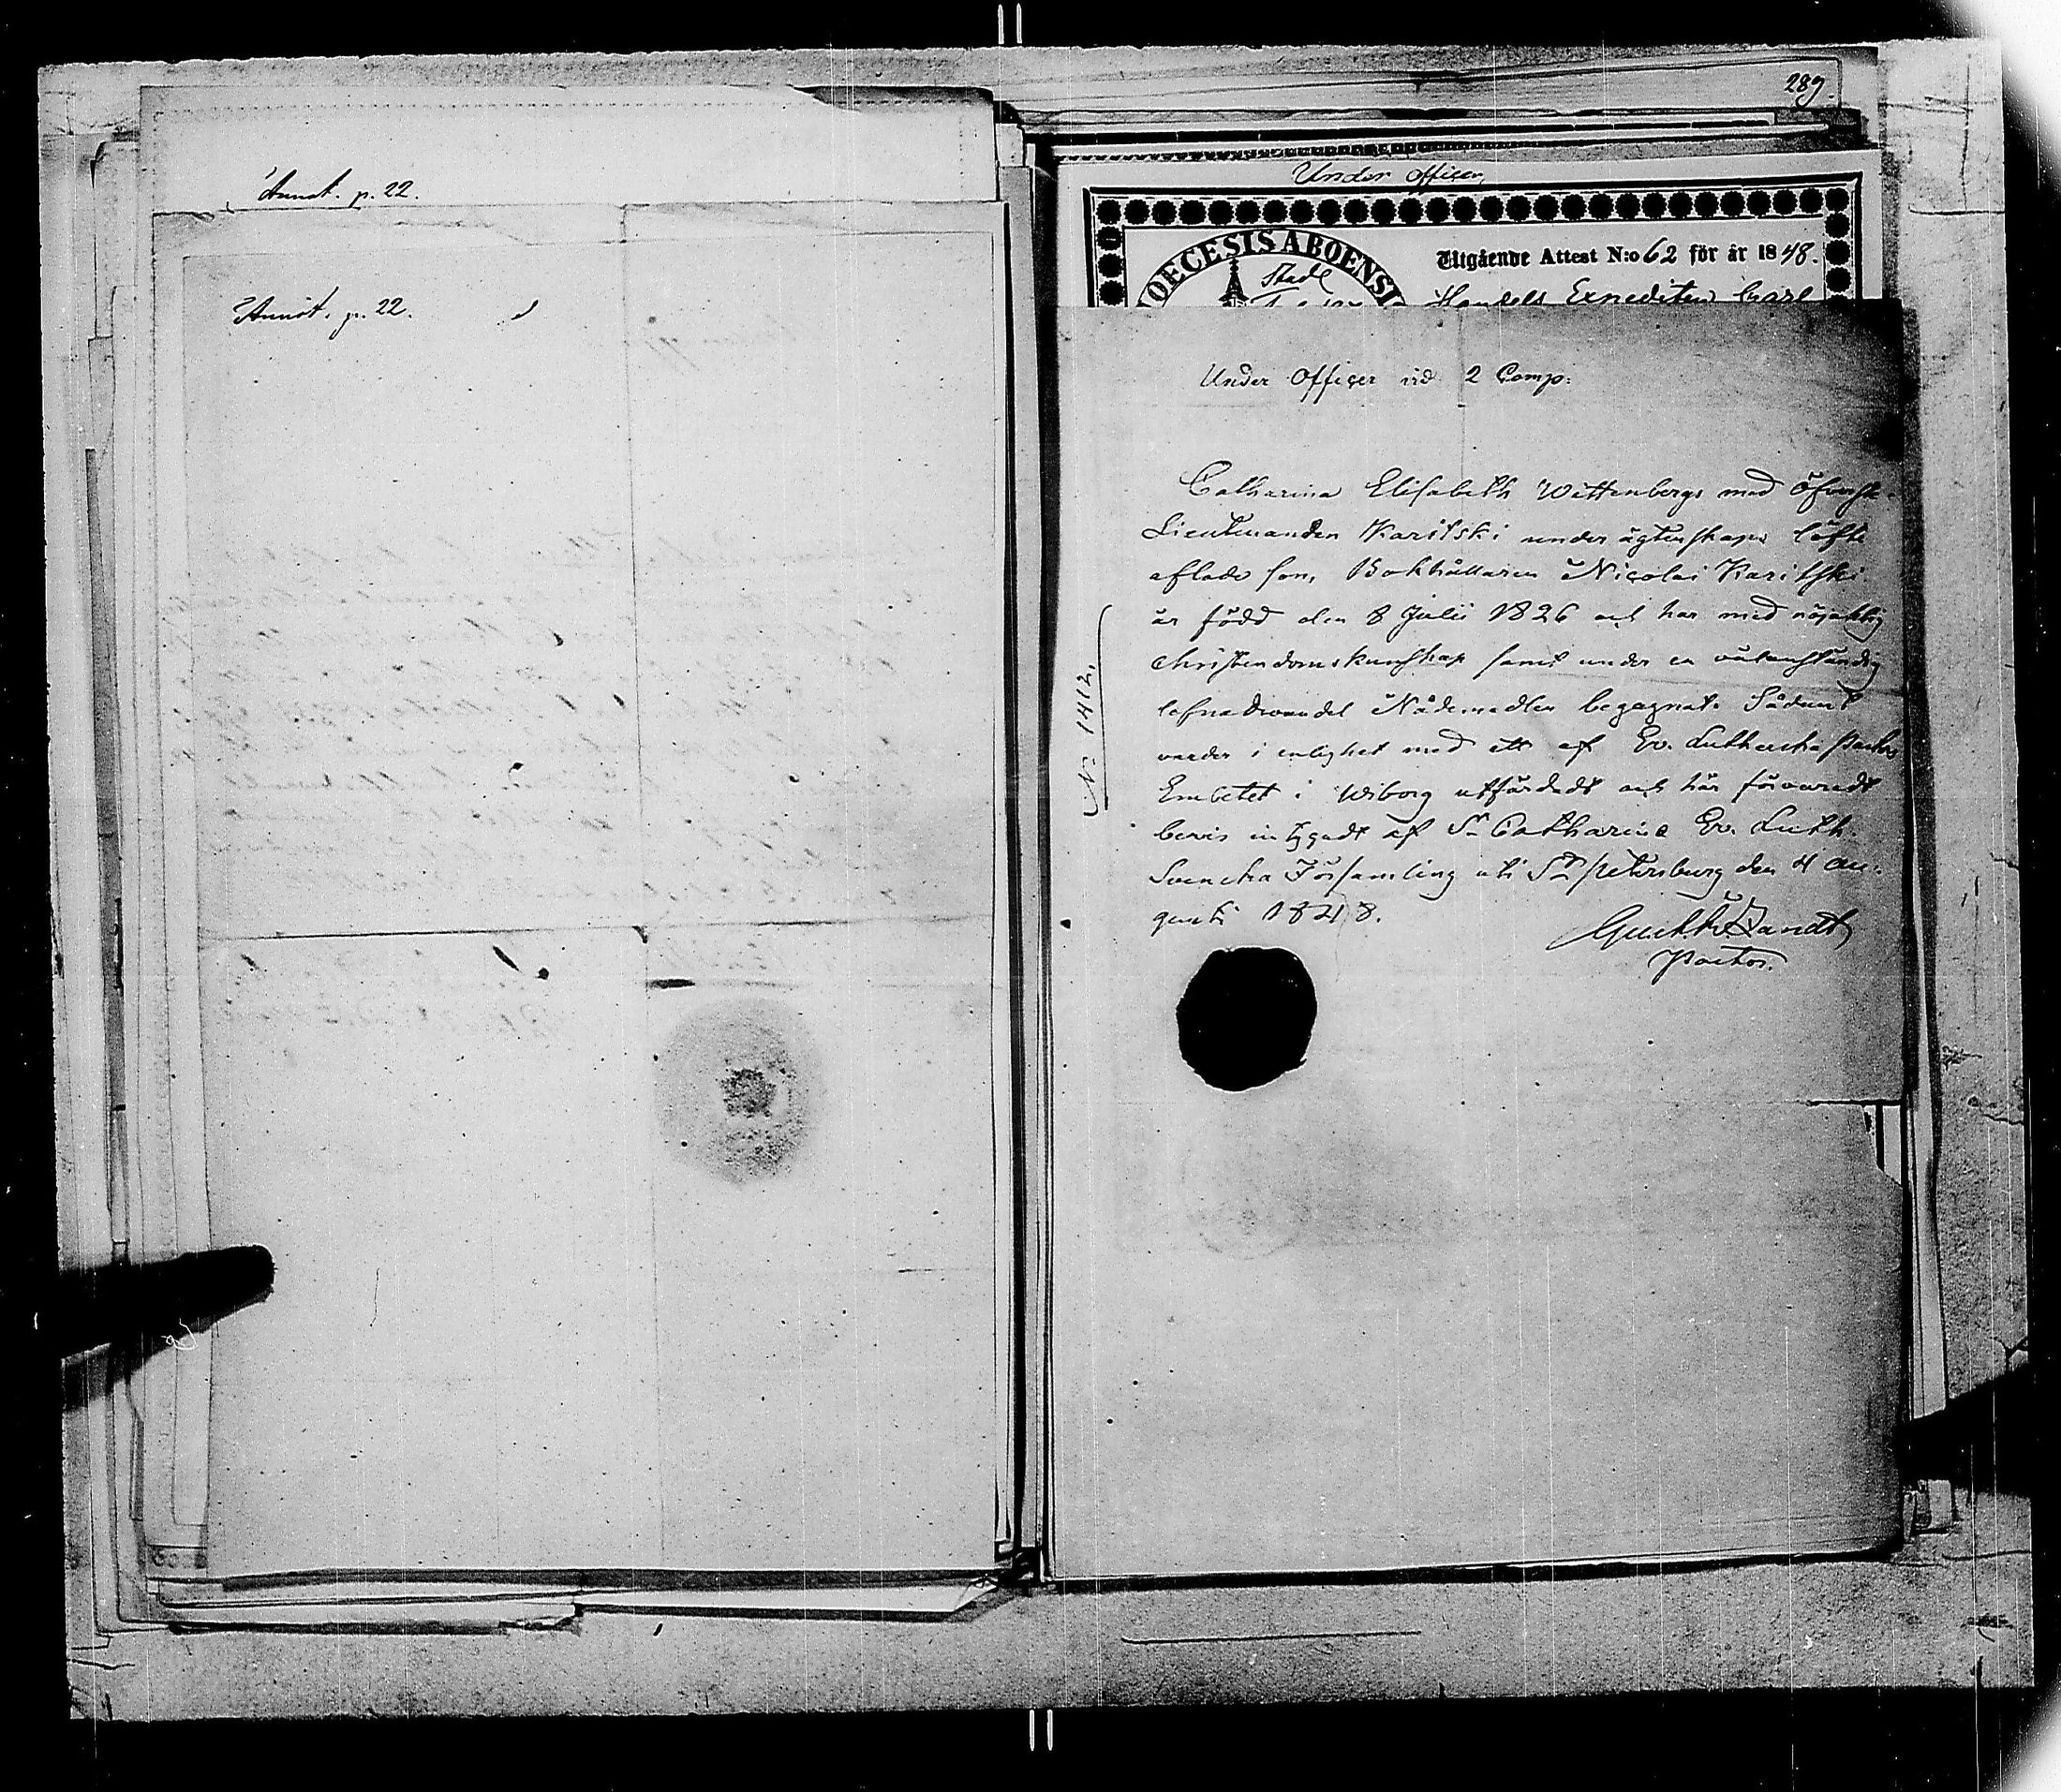 Annot. p. 22.
Annot. p. 22.
289
Under officer,
DIOECESIS ABOENSI
Stads
Utgående Attest N:o 62 för år 1848.
Handels Expediten Carl
Under Officer vid 2 Comp:
Catharina Elisabeth Wittenbergs med Öfverste-
Lieutenanden Karitski under ägtenskaps löfte
aflade son, Bokhållaren Nicolai Karitski
är född den 8 Julii 1826 och har med nöjaktig
christendomskunskap samt under en välanständig
lefnadsvandel Nådemedlen begagnat. Sådant
varder i enlighet med ett af Ev. Lutherska Pastors
Embetet i Wiborg utfärdadt och här förvaradt
bevis intygadt af St Catharina Ev. Luth.
Svenska Församling uti St Petersburg den 4 Au-
gusti 1848.
Pastor.
No 1412.